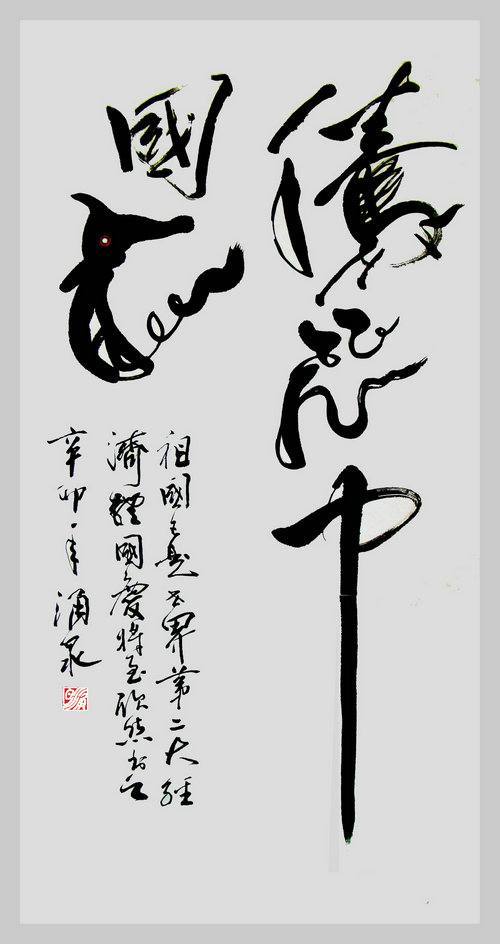 騰飛中
國龍
祖國已是世界第二大經
濟體國慶將至欣然書之
辛卯年涌泉